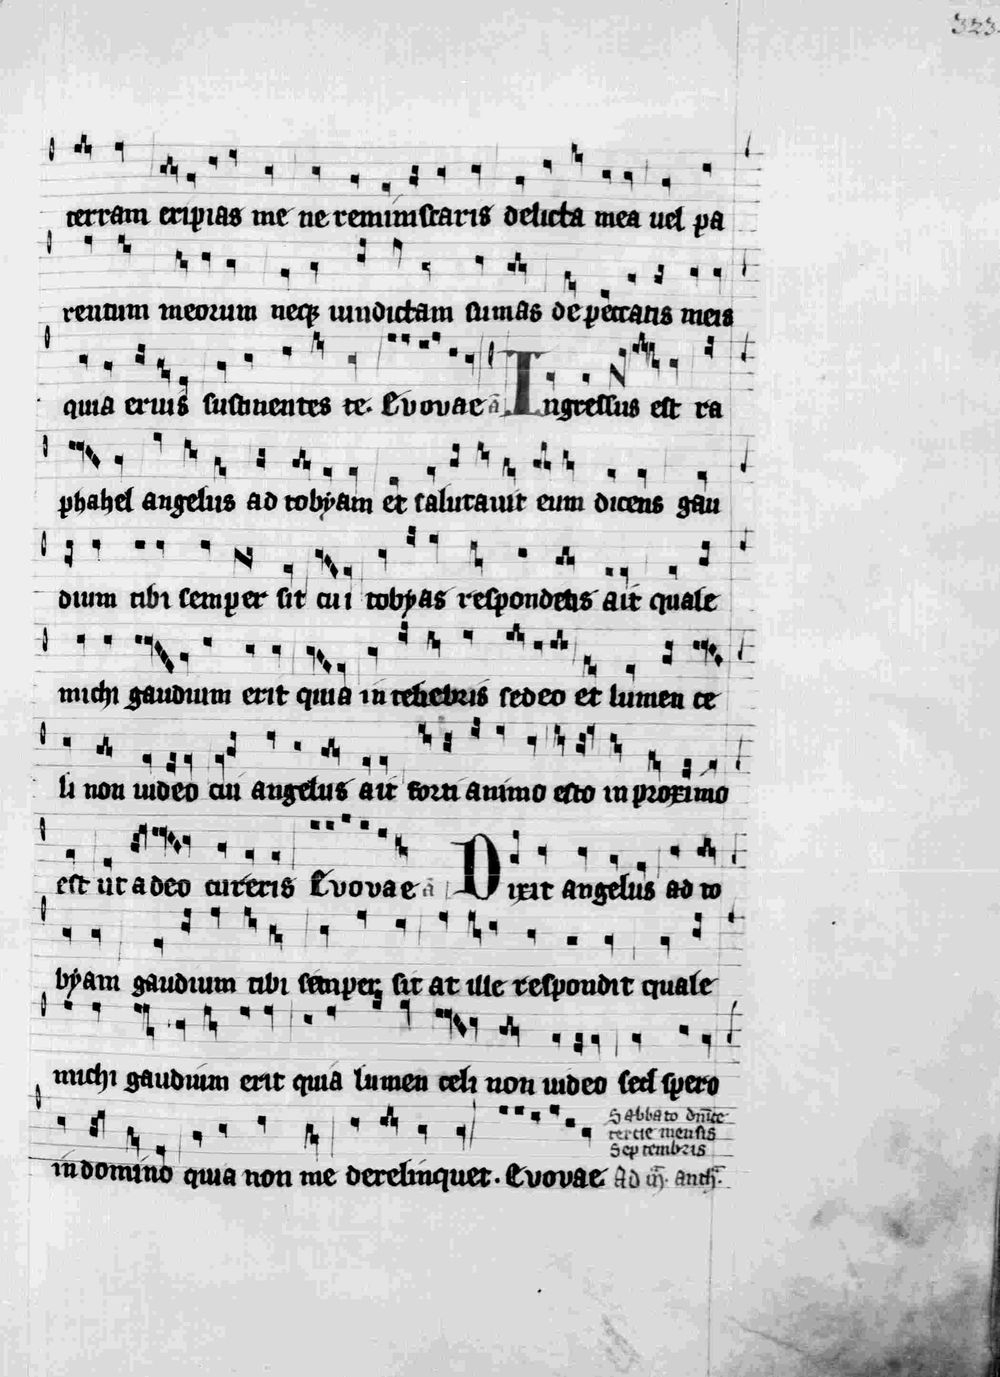 323
terram eripias me ne reminiscaris delicta mea uel pa
rentum meorum neqz uindictam sumas de peccatis meis
quia eruis sustinentes te. Euouae ā Ingressus est ra
phahel angelus ad tobyam et salutauit eum dicens gau
dium tibi semper sit cui tobyas respondens ait quale
michi gaudium erit quia in tenebris sedeo et lumen ce
li non uideo cui angelus ait forti animo esto in proximo
est ut a deo cureris Euouae ā Dixit angelus ad to
byam gaudium tibi semper sit at ille respondit quale
michi gaudium erit quia lumen celi non uideo sed spero
Sabbato dn̄ice
tercie mensis
Septembris
in domino quia non me derelinquet. Euouae Ad m̄. anth̄.